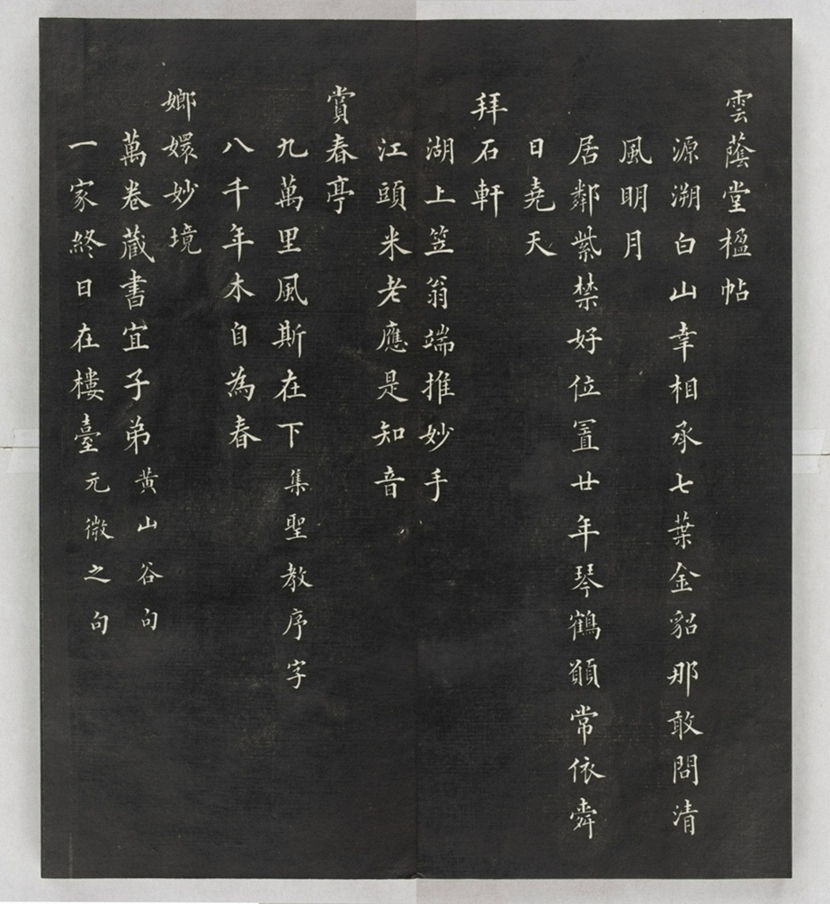 雲蔭堂楹帖
源溯白山幸相承七葉金貂那敢問清
風明月
居鄰紫禁好位置廿年琴鶴願常依舜
日堯天
拜石軒
湖上笠翁端推妙手
江頭米老應是知音
賞春亭
九萬里風斯在下集聖教序字
八千年木自為春
嫏嬛妙境
萬卷藏書宜子弟黄山谷句
一家終日在樓臺元微之句